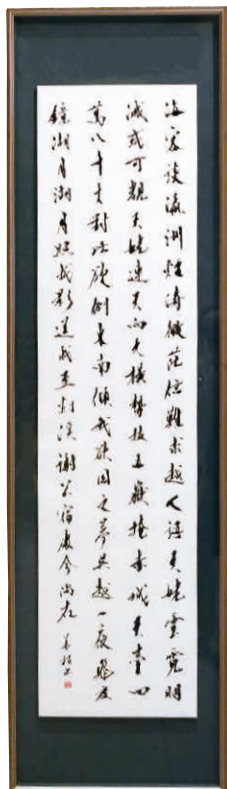 海客談瀛洲煙濤微茫信難求越人語天姥雲霓明
滅或可覩天姥連天向天橫勢拔五嶽掩赤城天臺四
萬八千丈對此欲倒東南傾我欲因之夢吳越一夜飛度
鏡湖月湖月照我影送我至剡溪謝公宿處今尚在